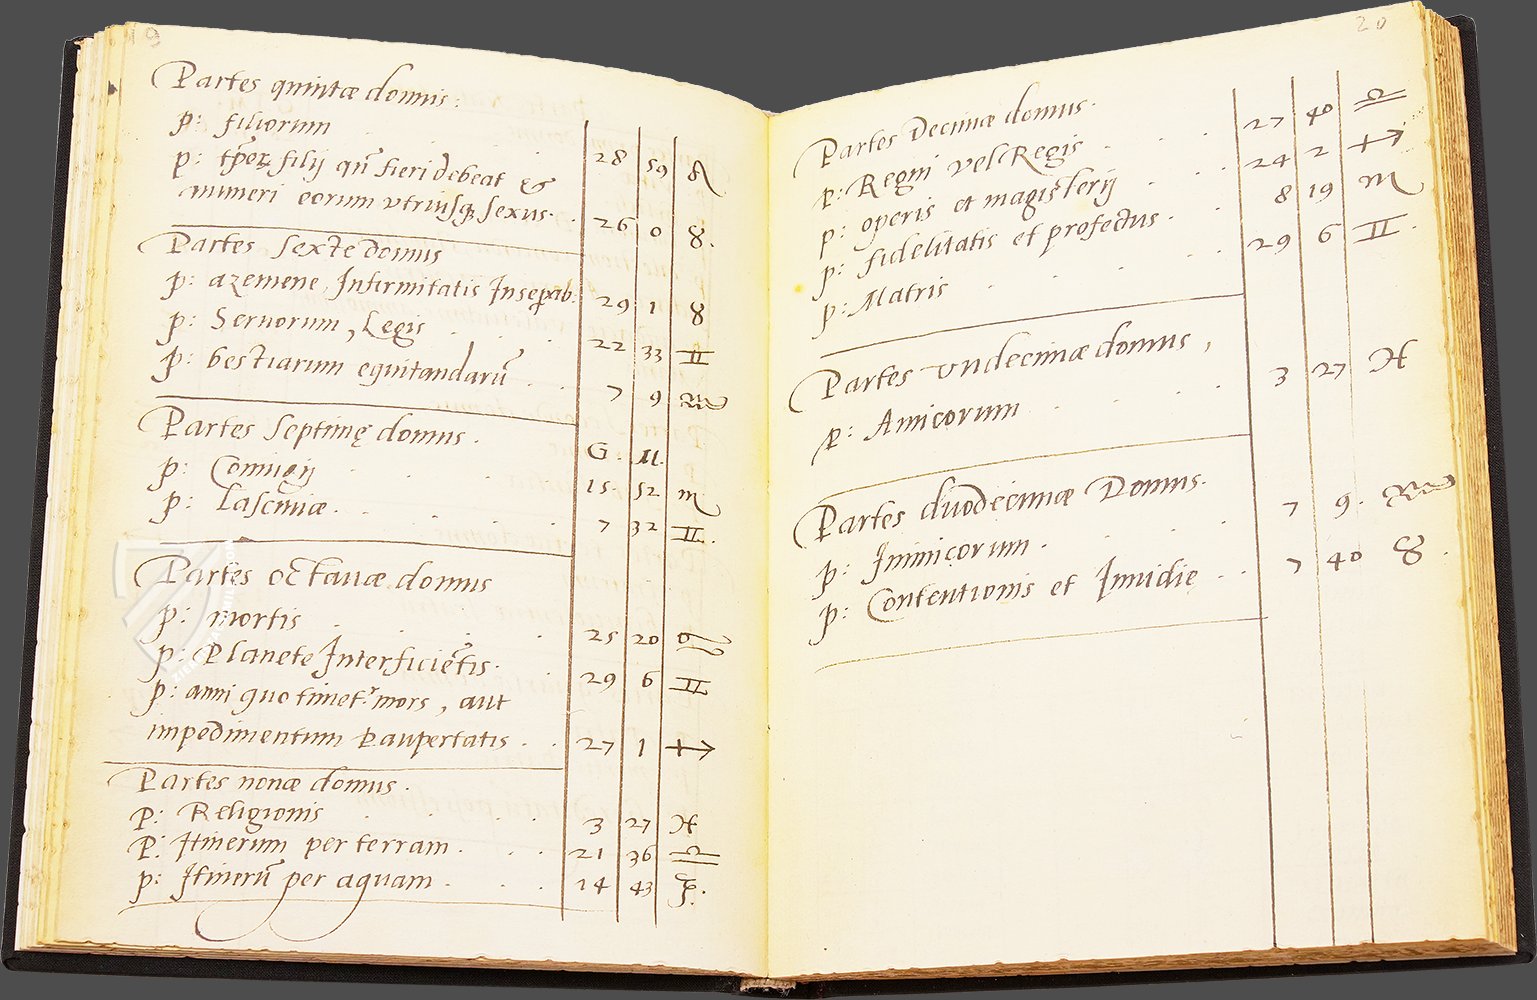 19
Partes quintæ domus:
p: filiorum 28 59 ♌
p: tp̄er filij qn̄ fieri debeat et
numeri eorum vtriusq sexus. 26 0 ♉.
Partes sexte domus
p: azemene, Infirmitatis Insepab. 29 1 ♉
p: Seruorum, Legis 22 33 ♊
p: bestiarum equitandarū 7 9 ♒
Partes Septimę domus. G. M.
p: Coniugij 15. 52 ♏
p: Lasciuiæ. 7 32 ♊.
Partes octauæ domus
p: mortis 25 20
p: Planete Interficiētis. 29 6 ♊
p: anni quo timet.r mors, aut
impedimentum Paupertatis. 27 1 ♐
Partes nonæ domus.
p: Religionis 3 27 ♓
p: Itinerum per terram. 21 36 ♎
p: Itinerū per aquam. 14 43
20
Partes Decimæ domus.
p: Regni vel Regis 27 40 ♎
p: operis et magisterij 24 2 ♐
p: fidelitatis et profectus. 8 19 ♏
p: Matris 29 6 ♊.
Partes vndecimæ domus,
p: Amicorum 3 27 ♓
Partes duodecimæ Domus.
p: Inimicorum. 7 9. ♒
p: Contentionis et Inuidie 7 40 ♉.